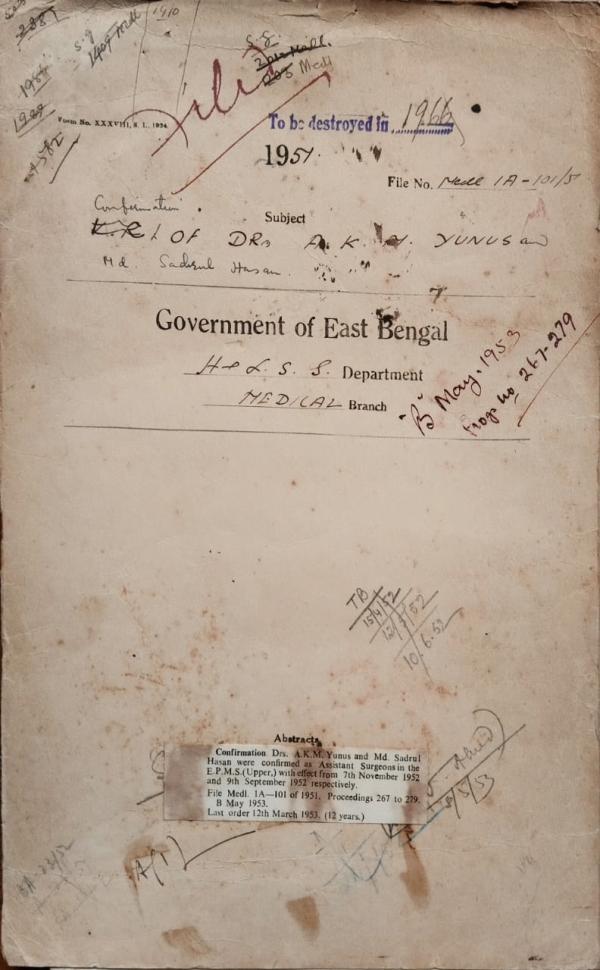 1910
S. G
1407 Medl
S. G.
Medl
Form No. XXXVIII, S. I., 1934.
To be destroyed in 1966
1951
File No. Medl 1A-101/51
Confirmation
Subject
OF DRs A. K. M. YUNUS and
Md. Sadrul Hasan.
Government of East Bengal
H & L. S. G. Department
MEDICAL Branch
"B" May. 1953
Progs no. 267-279
TB
15/4/52
12/5/52
10.6.52
Abstracts
Confirmation Drs. A.K.M. Yunus and Md. Sadrul
Hasan were confirmed as Assistant Surgeons in the
E.P.M.S. (Upper,) with effect from 7th November 1952
and 9th September 1952 respectively.
File Medl. 1A—101 of 1951, Proceedings 267 to 279.
B May 1953.
Last order 12th March 1953. (12 years.)